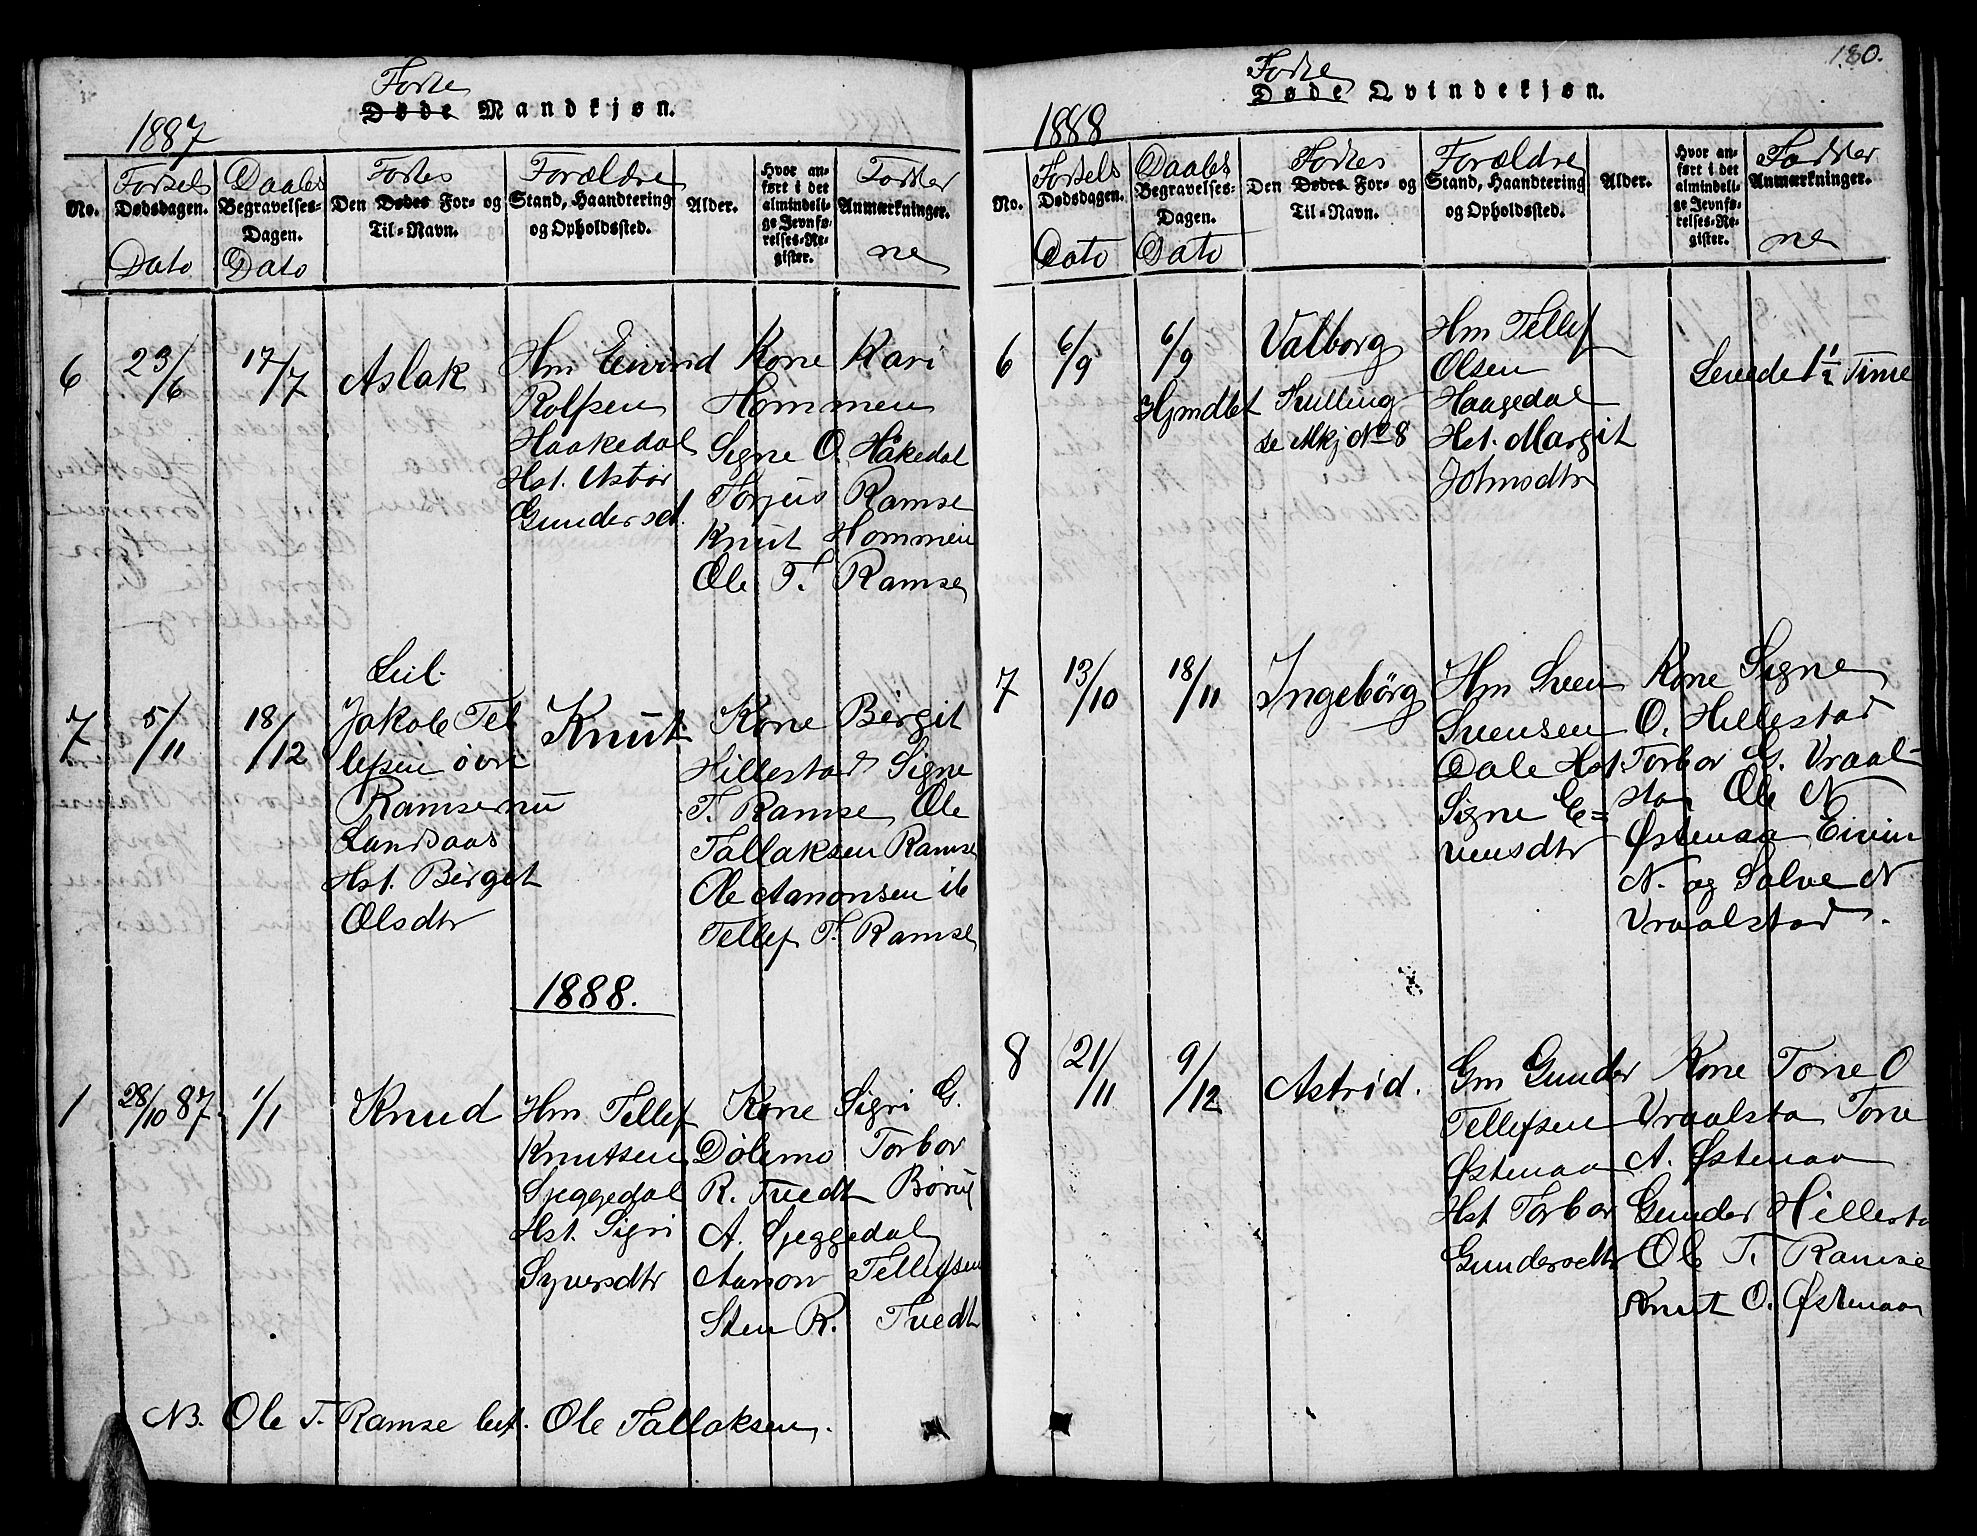 180.
Fødte
Døde Mandkjøn.
1887
No.
Fødsels
Dødsdagen.
Dato
Daabs
Begravelses-
Dagen.
Dato
Fødtes
Den Dødes For- og
Til-Navn.
Forældre
Stand, Haandtering
og Opholdssted.
Alder.
Hvor an-
ført i det
almindeli-
ge Jevnfø-
relses-Re-
gister.
Fadder
Anmærkninger.
ne
6
23/6
17/7
Aslak
Hm Eivind
Rolfsen
Haakedal
Hst. Asbør
Gundersd.
Kone Kari
Hommen
Signe O. Håkedal
Torjus Ramse
Knut Hommen
Ole T. Ramse
7
5/11
18/12
Jakob Tel
lefsen övre
Ramse nu
Landsaas
Hst. Birgit
Olsdtr
Knut
Kone Birgit
Hillestad Signe
T. Ramse Ole
Tallaksen Ramse
Ole Aanonsen ib
Tellef T. Ramse
1888.
1
28/10 87
1/1
Knud
Hm Tellef
Knutsen
Sjeggedal
Hst. Sigri
Syversdtr
Kone Sigri G.
Dölemo Torbor
R. Tvedt
A. Sjeggedal
Aanon Tellefsen
Sten R. Tvedt
NB. Ole T. Ramse Ole Tallaksen.
Fødte
Døde Qvindekjøn.
1888
No.
Fødsels
Dødsdagen.
Dato
Daabs
Begravelses-
Dagen.
Dato
Fødtes
Den Dødes For- og
Til-Navn.
Forældre
Stand, Haandtering
og Opholdssted.
Alder.
Hvor an-
ført i det
almindeli-
ge Jevnfø-
relses-Re-
gister.
Fadder
Anmærkninger.
ne
6
6/9
6/9
Hjmdbt
Valborg
Tvilling
se Mkj No 8
Hm Tellef
Olsen
Haagedal
Hst. Margit
Johnsdtr
Levede 1 1/2 Time
7
13/10
18/11
Ingebörg
Hm Sven
Svensen
Dale Hst
Signe E=
vensdtr
Kone Signe
O. Hillestad
Torbor G. Vraal-
stad Ole N
Østenaa Eivin
N. og Salve N
Vraalstad.
8
21/11
9/12
Astrid.
Gm Gunder
Tellefsen
Østenaa
Hst Torbor
Gundersdtr
Kone Tone O
Vraalsta Tone
A. Østenaa
Gunder Hillesta
Ole T. Ramse
Knut O. Østenaa